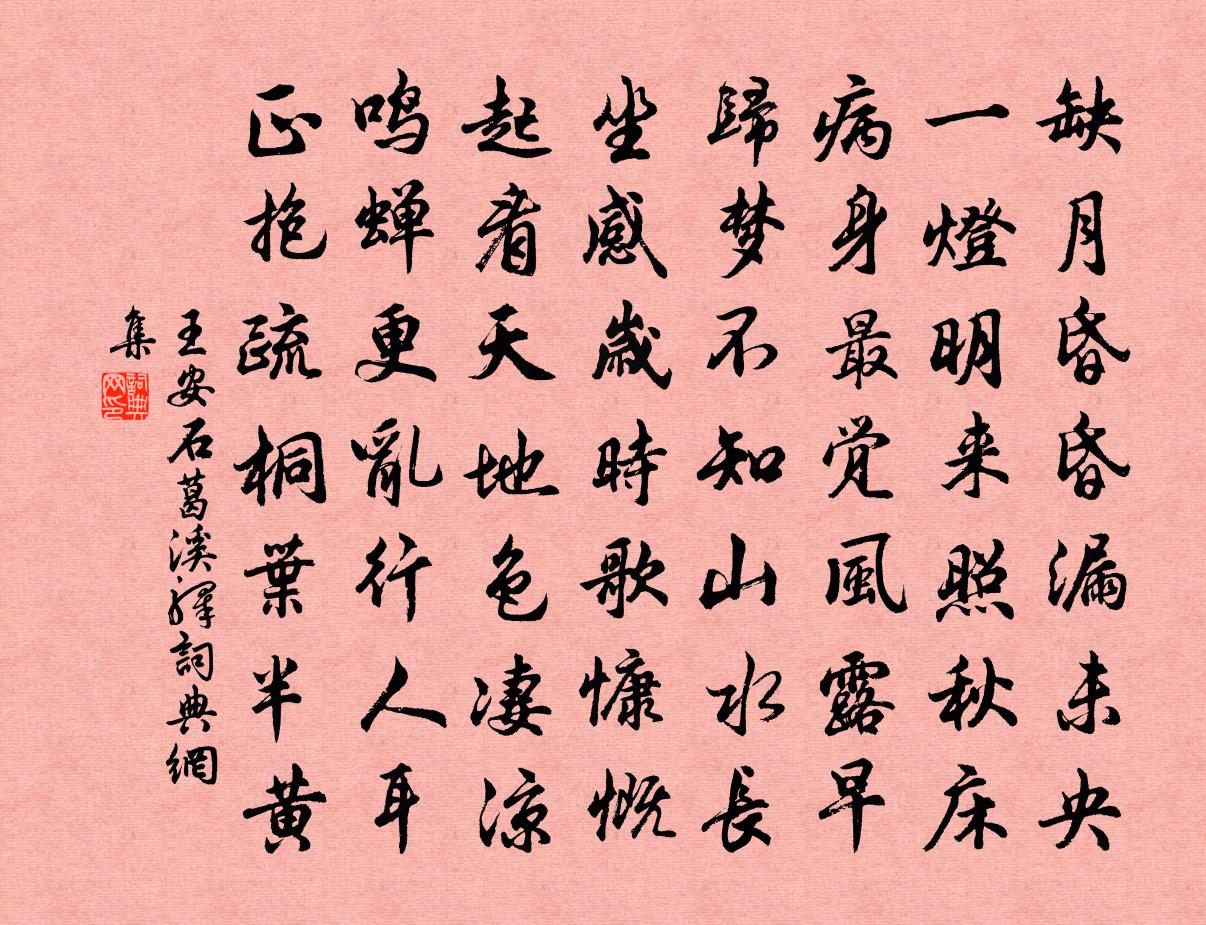 缺月昏昏漏未央
一燈明来照秋床
病身最觉風露早
歸梦不知山水長
坐感歲時歌慷慨
起看天地色凄涼
鸣蝉更亂行人耳
正抱疏桐葉半黄
王安石葛溪驛詞典網
集
詞典
网印